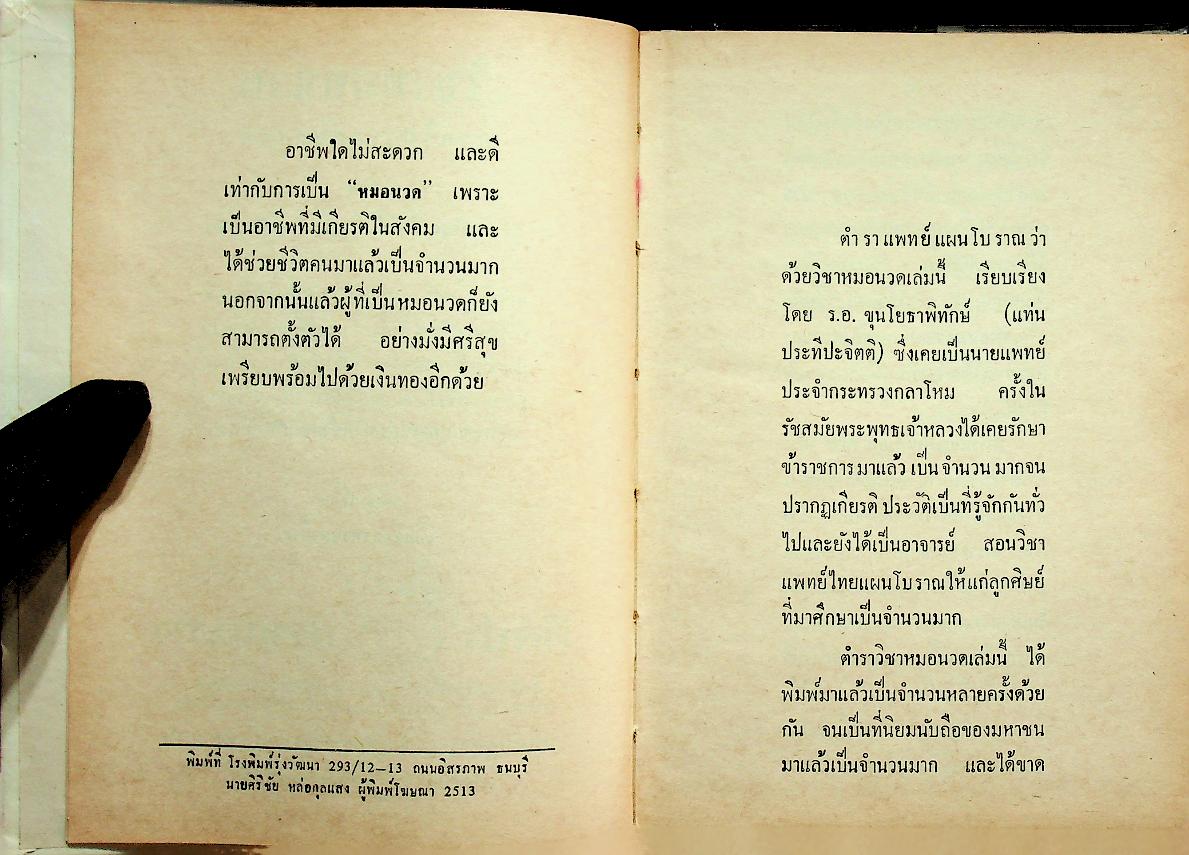 อาชีพใดไม่สะดวก และดี
เท่ากับการเป็น “หมอนวด” เพราะ
เป็นอาชีพที่มีเกียรติในสังคม และ
ได้ช่วยชีวิตคนมาแล้วเป็นจำนวนมาก
นอกจากนั้นแล้วผู้ที่เป็นหมอนวดก็ยัง
สามารถตั้งตัวได้ อย่างมั่งมีศรีสุข
เพรียบพร้อมไปด้วยเงินทองอีกด้วย
พิมพ์ที่ โรงพิมพ์รุ่งวัฒนา 293/12–13 ถนนอิสรภาพ ธนบุรี
นายศิริชัย หล่อกุลแสง ผู้พิมพ์โฆษณา 2513
ตำ รา แพทย์ แผน โบ ราณ ว่า
ด้วยวิชาหมอนวดเล่มนี้ เรียบเรียง
โดย ร.อ. ขุนโยธาพิทักษ์ (แท่น
ประทีปะจิตติ) ซึ่งเคยเป็นนายแพทย์
ประจำกระทรวงกลาโหม ครั้งใน
รัชสมัยพระพุทธเจ้าหลวงได้เคยรักษา
ข้าราชการ มาแล้ว เป็น จำนวน มากจน
ปรากฏเกียรติ ประวัติเป็นที่รู้จักกันทั่ว
ไปและยังได้เป็นอาจารย์ สอนวิชา
แพทย์ไทยแผนโบราณให้แก่ลูกศิษย์
ที่มาศึกษาเป็นจำนวนมาก
ตำราวิชาหมอนวดเล่มนี้ ได้
พิมพ์มาแล้วเป็นจำนวนหลายครั้งด้วย
กัน จนเป็นที่นิยมนับถือของมหาชน
มาแล้วเป็นจำนวนมาก และได้ขาด